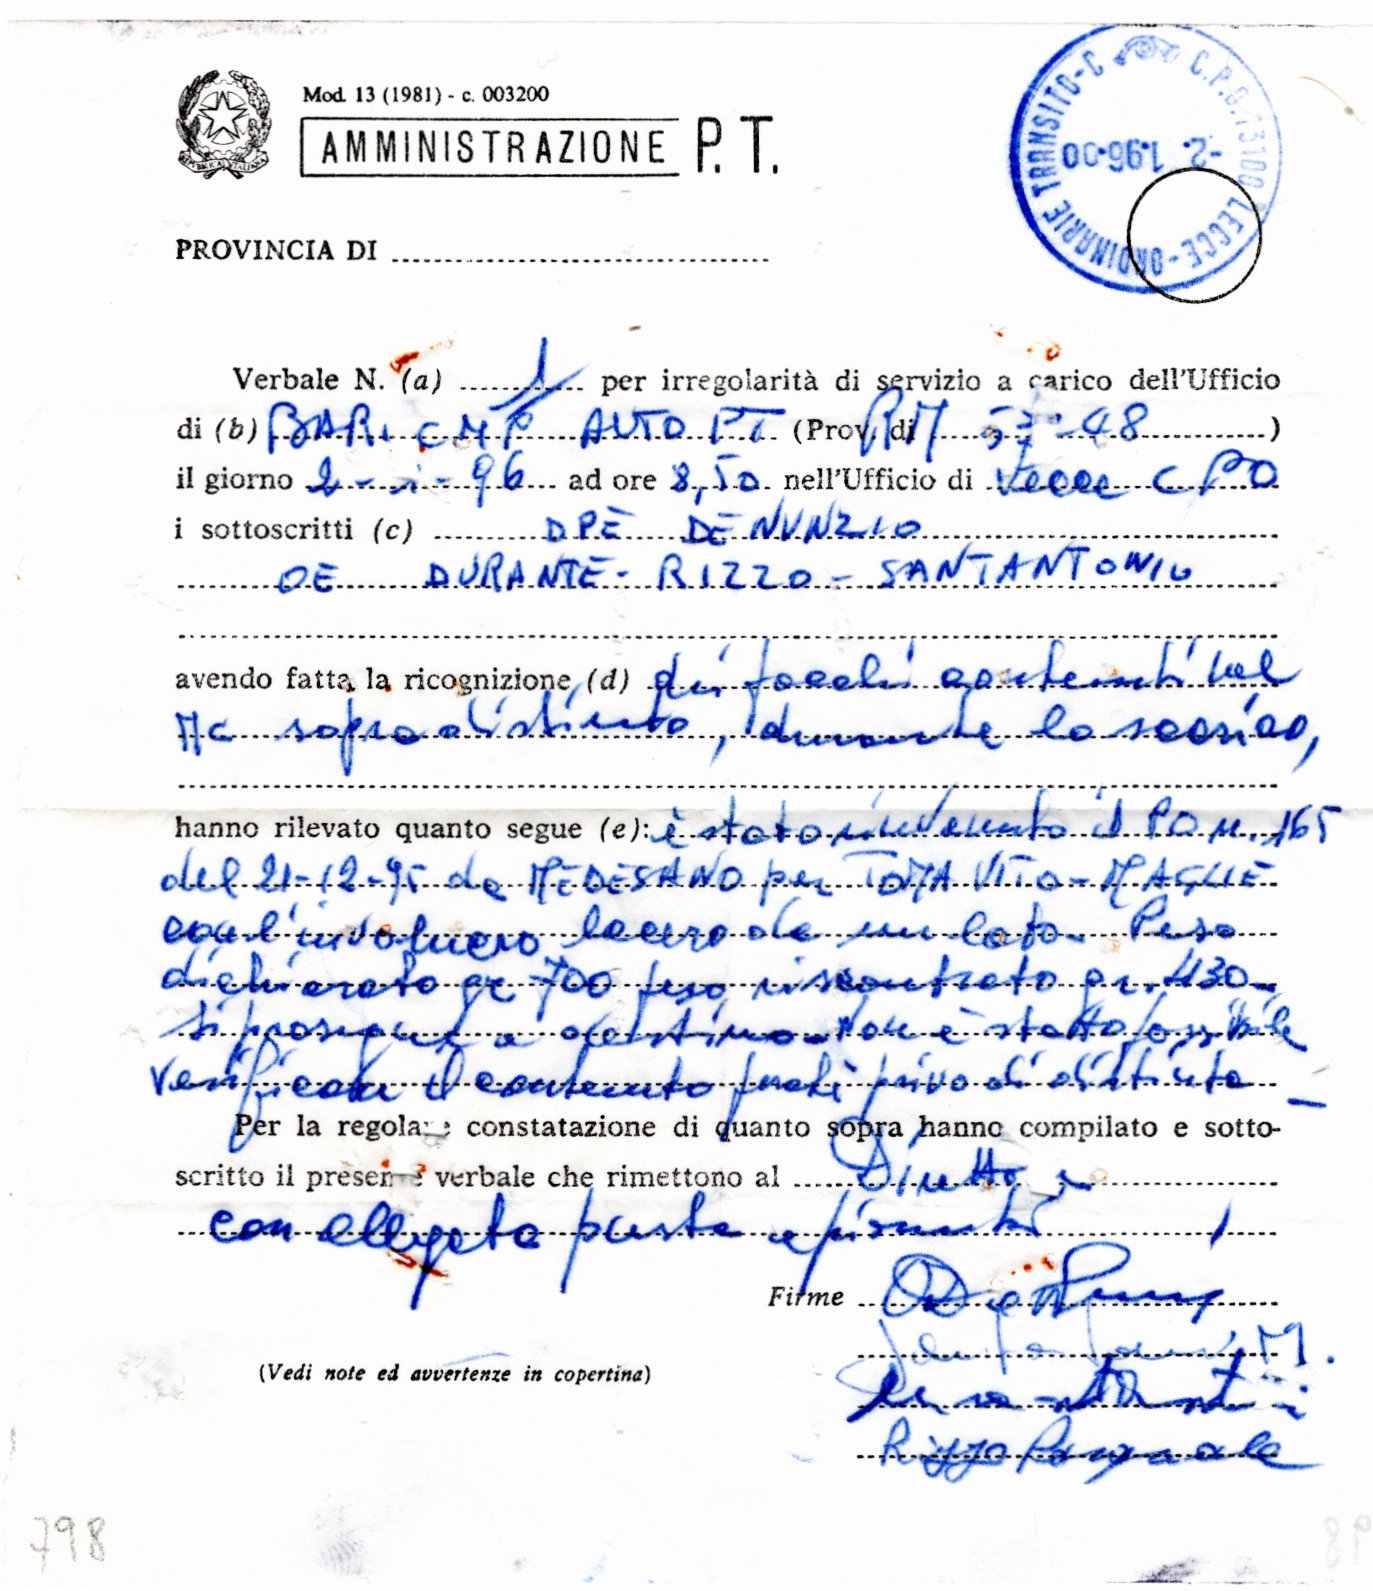 Mod. 13 (1981) - c. 003200
AMMINISTRAZIONE P.T.
C.P.O. 73100 LECCE - ORDINARIE TRANSITO - C
-2. 1.96-00
PROVINCIA DI
Verbale N. (a) 1 per irregolarità di servizio a carico dell'Ufficio
di (b) BARI CMP AUTO PT (Prov. di RM 57-48 )
il giorno 2-1-96 ad ore 8,50 nell'Ufficio di Lecce CPO
i sottoscritti (c) DPE DE NUNZIO
OE DURANTE - RIZZO - SANTANTONIO
avendo fatta la ricognizione (d) dei pacchi contenuti nel
Mc sopra distinto, durante lo scarico,
hanno rilevato quanto segue (e): è stato rinvenuto il PO n. 165
del 21-12-95 da MEDESANO per TOMA VITO - MAGLIE
con l'involucro lacero da un lato. Peso
dichiarato gr 700 peso riscontrato gr. 430 -
Si prosegue a destino. Non è stato possibile
verificare il contenuto perché privo di distinta -
Per la regolare constatazione di quanto sopra hanno compilato e sotto-
scritto il presente verbale che rimettono al Direttore
con allegato
Firme
(Vedi note ed avvertenze in copertina)
Rizzo Pasquale
798